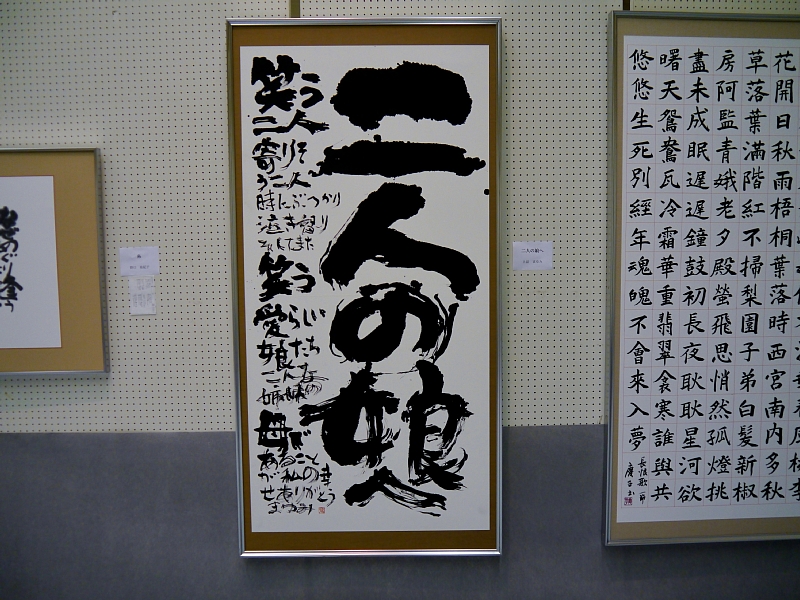 二人の娘へ
笑う
二人
寄りそ
う二人
時にぶつかり
泣き怒り
それでまた
笑う
愛らしい
娘たち
こんな
姉妹の
母が
あること
私の幸
せありがとう
まゆみ
二人の娘へ
花開日秋雨梧桐葉落時西宮南内多秋
草落葉滿階紅不掃梨園子弟白髮新椒
房阿監青娥老夕殿螢飛思悄然孤燈挑
盡未成眠遲遲鐘鼓初長夜耿耿星河欲
曙天鴛鴦瓦冷霜華重翡翠衾寒誰與共
悠悠生死別經年魂魄不會來入夢
長恨歌一節